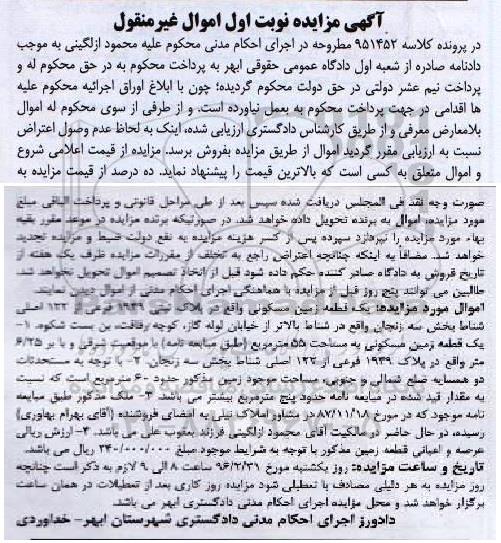 آگهی مزایده نوبت اول اموال غیرمنقول
در پرونده کلاسه ۹۵۱۴۵۲ مطروحه در اجرای احکام مدنی محکوم علیه محمود ازلگینی به موجب
دادنامه صادره از شعبه اول دادگاه عمومی حقوقی ابهر به پرداخت محکوم به در حق محکوم له و
پرداخت نیم عشر دولتی در حق دولت محکوم گردیده؛ چون با ابلاغ اوراق اجرائیه محکوم علیه
ها اقدامی در جهت پرداخت محکوم به بعمل نیاورده است. و از طرفی از سوی محکوم له اموال
بلامعارض معرفی و از طریق کارشناس دادگستری ارزیابی شده، اینک به لحاظ عدم وصول اعتراض
نسبت به ارزیابی مقرر گردید اموال از طریق مزایده بفروش برسد. مزایده از قیمت اعلامی شروع
و اموال متعلق به کسی است که بالاترین قیمت را پیشنهاد نماید. ده درصد از قیمت مزایده به
صورت وجه نقد فی المجلس دریافت شده سپس بعد از طی مراحل قانونی و پرداخت الباقی مبلغ
مورد مزایده، اموال به برنده تحویل داده خواهد شد. در صورتیکه برنده مزایده در موعد مقرر بقیه
بهاء مورد مزایده را نپردازد سپرده پس از کسر هزینه مزایده به نفع دولت ضبط و مزایده تجدید
خواهد شد. مضافاً به اینکه چنانچه اعتراض راجع به تخلف از مقررات مزایده ظرف یک هفته از
تاریخ فروش به دادگاه صادر کننده حکم داده شود قبل از اتخاذ تصمیم اموال تحویل نخواهد شد.
طالبین می توانند پنج روز قبل از مزایده با هماهنگی اجرای احکام مدنی از اموال دیدن نمایند.
اموال مورد مزایده: یک قطعه زمین مسکونی واقع در پلاک ثبتی ۱۹۳۹ فرعی از ۱۲۲ اصلی
شناط بخش سه زنجان واقع در شناط بالاتر از خیابان لوله گاز، کوچه رفاقت، بن بست شکوه. ۱-
یک قطعه زمین مسکونی به مساحت ۵۵ مترمربع (طبق مبایعه نامه) با موقعیت شرقی و با بر ۶/۲۵
متر واقع در پلاک ۱۹۳۹ فرعی از ۱۲۲ اصلی شناط بخش سه زنجان. ۲- با توجه به مستحدثات
دو همسایه ضلع شمالی و جنوبی، مساحت موجود زمین مذکور حدود ۶۰ مترمربع است که نسبت
به مقدار قید شده در مبایعه نامه حدود پنج مترمربع بیشتر می باشد. ۳- ملک مذکور طبق مبایعه
نامه موجود که در مورخ ۸۷/۱۱/۱۸ در مشاور املاک نیلی به امضای فروشنده (آقای بهرام بهاوری)
رسیده، در حال حاضر در مالکیت آقای محمود ازلگینی فرزند یعقوب علی می باشد. ۴- ارزش ریالی
عرصه و اعیانی قطعه زمین مذکور با توجه به شرایط موجود مبلغ ۲۴۰/۰۰۰/۰۰۰ ریال می باشد.
تاریخ و ساعت مزایده: روز یکشنبه مورخ ۹۶/۲/۳۱ ساعت ۸ الی ۹ لازم به ذکر است چنانچه
روز مزایده به هر دلیلی مصادف با تعطیلی شود مزایده روز کاری بعد از تعطیلات، در همان ساعت
برگزار خواهد شد و محل مزایده اجرای احکام مدنی دادگستری ابهر می باشد.
دادورز اجرای احکام مدنی دادگستری شهرستان ابهر- خداوردی